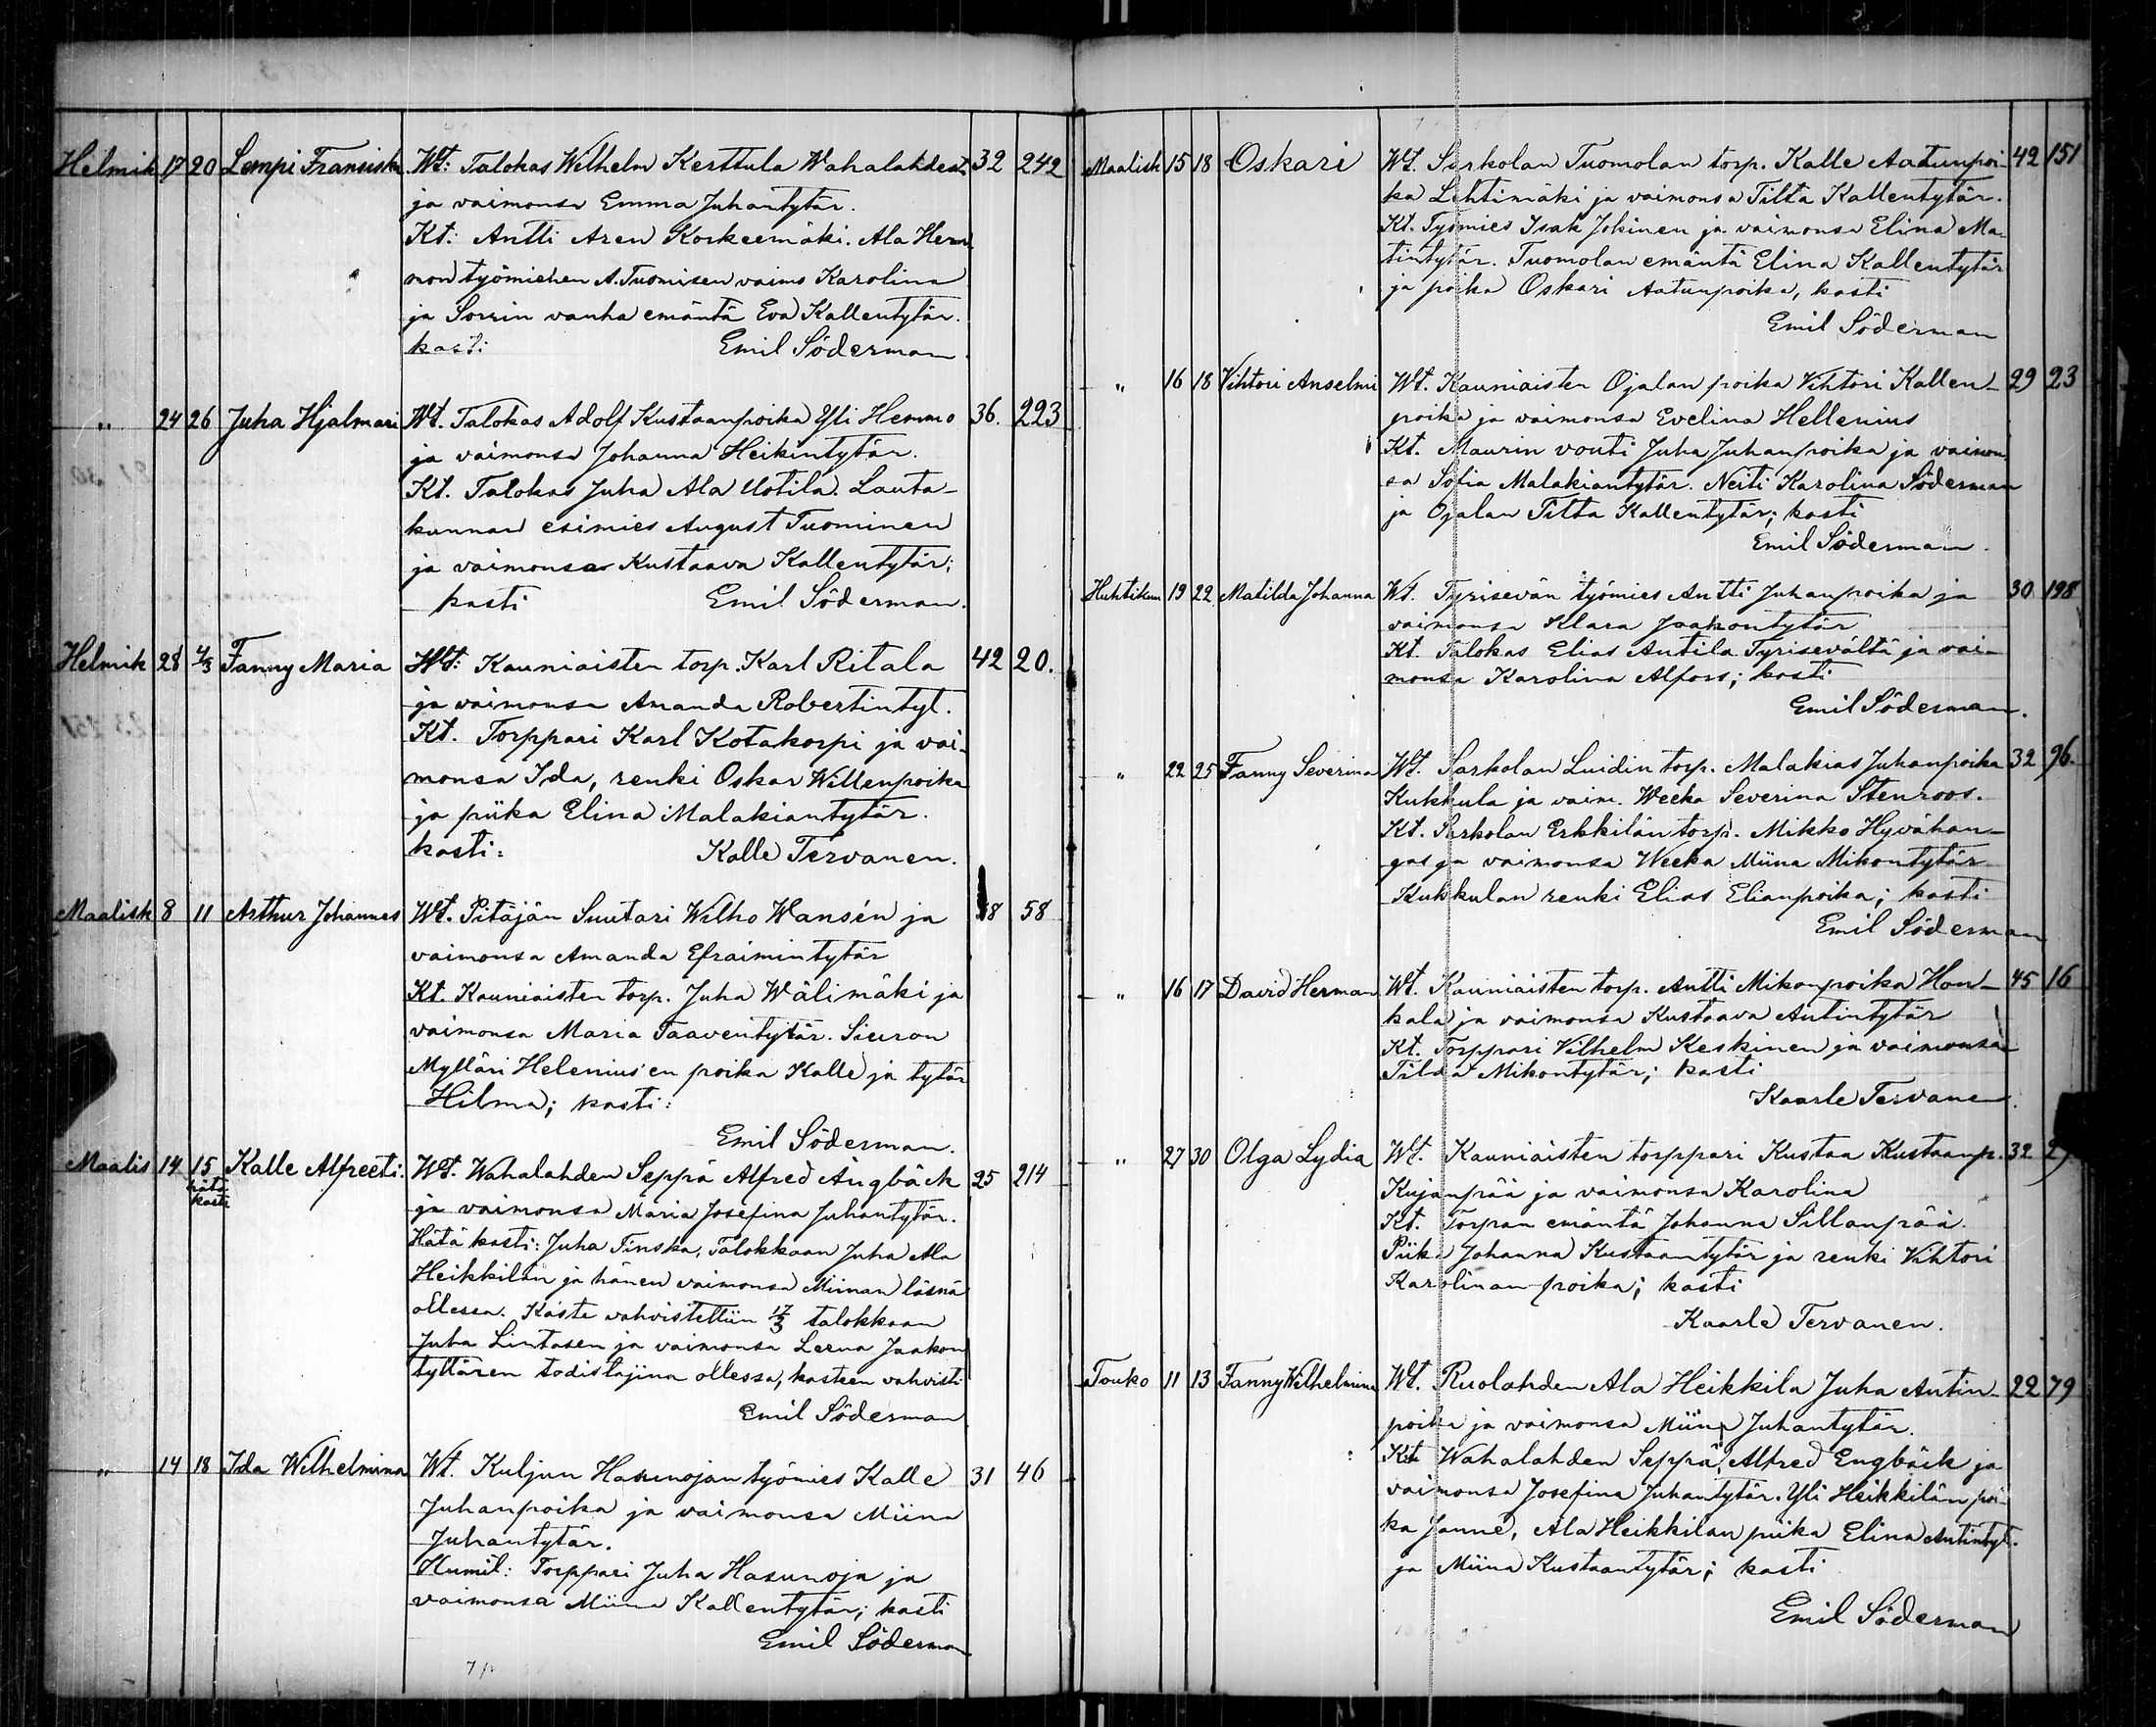 Helmik 17 20 Lempi Fransiska Wt: Talokas Wilhelm Kerttula Wahalahdest 32 242
ja vaimonsa Emma Juhantytär.
Kt: Antti Aren Korkeemäki. Ala Hem
mon työmiehen A. Tuomisen vaimo Karolina
ja Sorrin vanha emäntä Eva Kallentytär.
kasti Emil Söderman
" 24 26 Juha Hjalmari Wt. Talokas Adolf Kustaanpoika Yli Hemmo 36. 223
ja vaimonsa Johanna Heikintytär.
Kt. Talokas Juha Ala Uotila. Lauta-
kunnan esimies August Tuominen
ja vaimonsa Kustaava Kallentytär;
kasti Emil Söderman.
Helmik 28 4/3 Fanny Maria Wt: Kauniaisten torp. Karl Ritala 42 20.
ja vaimonsa Amanda Robertintyt.
Kt. Torppari Karl Kotakorpi ja vai-
monsa Ida, renki Oskar Willenpoika
ja piika Elina Malakiantytär.
kasti: Kalle Tervanen.
Maalisk 8 11 Arthur Johannes Wt. Pitäjän Suutari Wilho Wansén ja 38 58
vaimonsa Amanda Efraimintytär
Kt. Kauniaisten torp. Juha Wälimäki ja
vaimonsa Maria Taaventytär. Siuron
Mylläri Helenius'en poika Kalle ja tytär
Hilma; kasti:
Emil Söderman.
Maalis 14 15 hätä kasti Kalle Alfreeti: Wt. Wahalahden Seppä Alfred Ängbäck 25 214
ja vaimonsa Maria Josefina Juhantytär.
Hätä kasti: Juha Finska, Talokkaan Juha Ala
Heikkilän ja hänen vaimonsa Miinan läsnä
ollessa. Kaste vahvistettiin 17/3 talokkaan
Juha Lintasen ja vaimonsa Leena Jaakon
tyttären todistajina ollessa, kasteen vahvisti
Emil Söderman
" 14 18 Ida Wilhelmina Wt. Kuljun Hasunojan työmies Kalle 31 46
Juhanpoika ja vaimonsa Miina
Juhantytär.
Kumit: Torppari Juha Hasunoja ja
vaimonsa Miina Kallentytär; kasti
Emil Söderman
Maalisk 15 18 Oskari Wt. Sarkolan Tuomolan torp. Kalle Aatunpoi- 42 151
ka Lehtimäki ja vaimonsa Tilta Kallentytär.
Kt. Työmies Isak Jokinen ja vaimonsa Elina Ma-
tintytär. Tuomolan emäntä Elina Kallentytär
ja poika Oskari Aatunpoika, kasti
Emil Söderman
" 16 18 Vihtori Anselmi Wt. Kauniaisten Ojalan poika Vihtori Kallen- 29 23
poika ja vaimonsa Evelina Hellenius
Kt. Maurin vouti Juha Juhanpoika ja vaimon
sa Sofia Malakiantytär. Neiti Karolina Söderman
ja Ojalan Tilta Kallentytär; kasti
Emil Söderman.
Huhtikuu 19 22 Matilda Johanna Wt. Tyrisevän työmies Antti Juhanpoika ja 30 198
vaimonsa Klara Jaakontytär
Kt. Talokas Elias Antila Tyrisevältä ja vai-
monsa Karolina Alfors; kasti
Emil Söderman.
" 22 25 Fanny Severina Wt. Sarkolan Luidin torp. Malakias Juhanpoika 32 96.
Kukkula ja vaim. Weeka Severina Stenroos.
Kt. Sarkolan Erkkilän torp. Mikko Hyvähan-
gas ja vaimonsa Weeka Miina Mikontytär
Kukkulan renki Elias Elianpoika; kasti
Emil Söderman
" 16 17 David Herman Wt. Kauniaisten torp. Antti Mikonpoika Hon- 45 16
kala ja vaimonsa Kustaava Antintytär
Kt. Torppari Vilhelm Keskinen ja vaimonsa
Tilda Mikontytär; kasti
Kaarle Tervane
" 27 30 Olga Lydia Wt. Kauniaisten torppari Kustaa Kustaanp. 32
Kujanpää ja vaimonsa Karolina
Kt. Torpan emäntä Johanna Sillanpää.
Piika Johanna Kustaantytär ja renki Vihtori
Karolinan poika; kasti
Kaarle Tervanen.
Touko 11 13 Fanny Wilhelmina Wt. Ruolahden Ala Heikkila Juha Antin- 22 79
poika ja vaimonsa Miina Juhantytär.
Kt. Wahalahden Seppä Alfred Engbäck ja
vaimonsa Josefina Juhantytär. Yli Heikkilän poi-
ka Janne, Ala Heikkilan piika Elina Antintyt.
ja Miina Kustaantytär; kasti
Emil Söderman